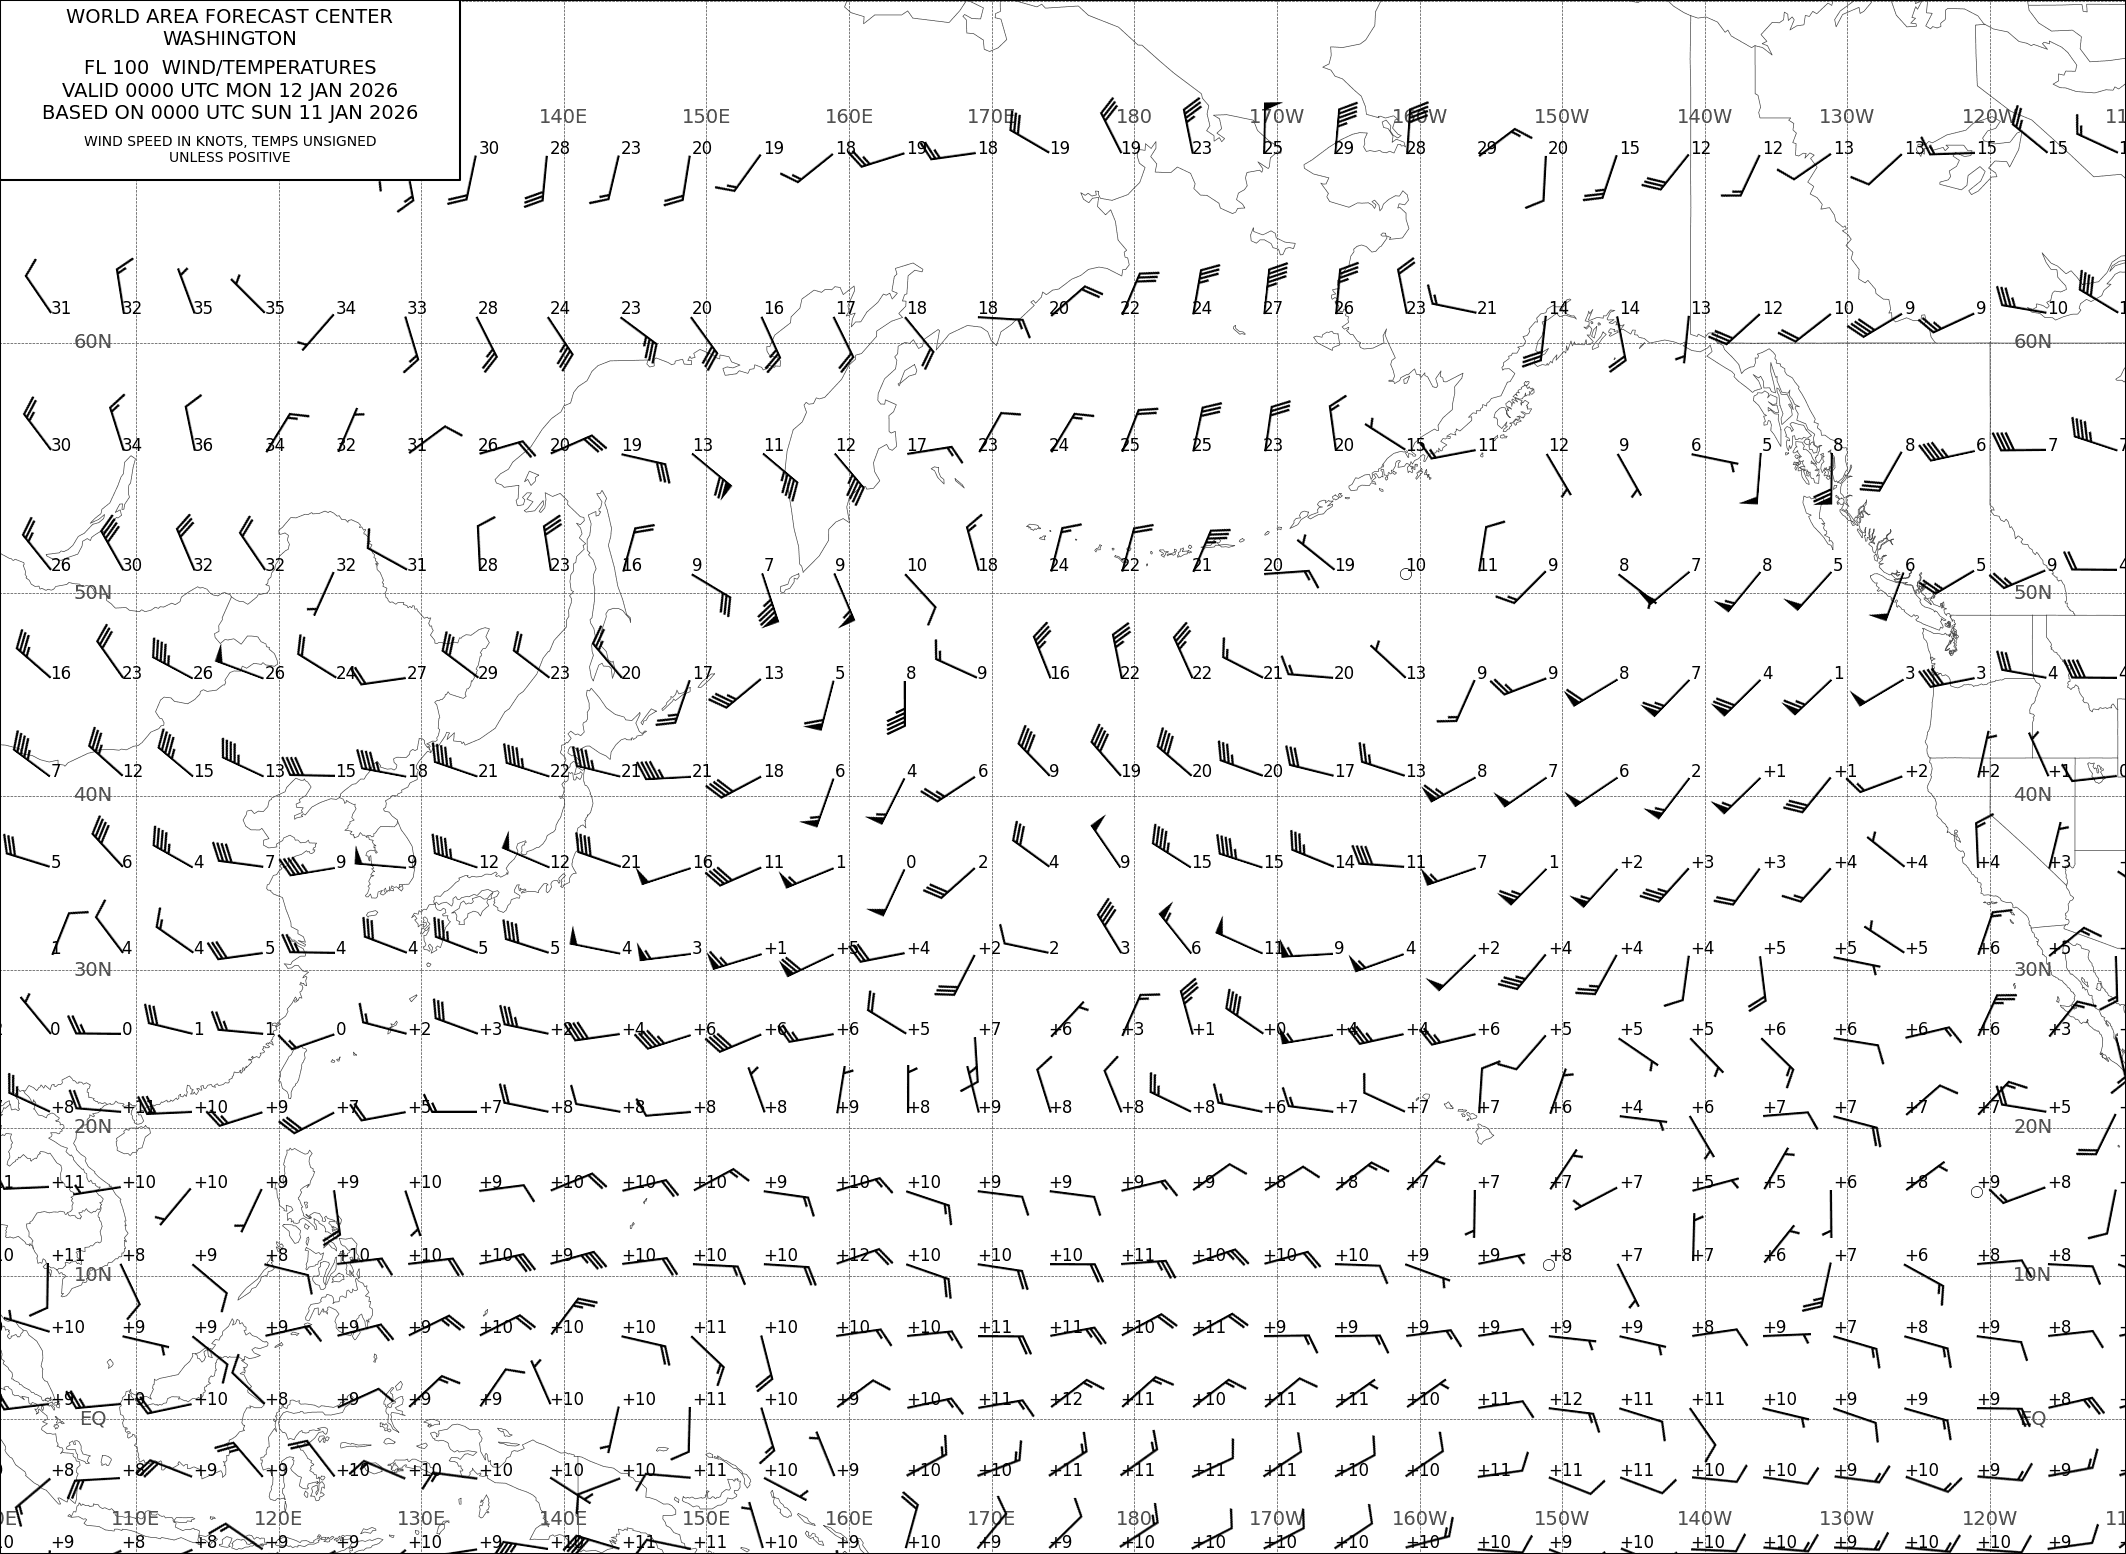 WORLD AREA FORECAST CENTER
WASHINGTON
FL 100 WIND/TEMPERATURES
VALID 0000 UTC MON 12 JAN 2026
BASED ON 0000 UTC SUN 11 JAN 2026
WIND SPEED IN KNOTS, TEMPS UNSIGNED
UNLESS POSITIVE
140E 150E 160E 170E 180 170W 160W 150W 140W 130W 120W
30 28 23 20 19 18 19 18 19 19 23 25 29 28 29 20 15 12 12 13 13 15 15
31 32 35 35 34 33 28 24 23 20 16 17 18 18 20 22 24 27 26 23 21 14 14 13 12 10 9 9 10
60N 60N
30 34 36 34 32 31 26 20 19 13 11 12 17 23 24 25 25 23 20 15 11 12 9 6 5 8 8 6 7
26 30 32 32 32 31 28 23 16 9 7 9 10 18 24 22 21 20 19 10 11 9 8 7 8 5 6 5 9
50N 50N
16 23 26 26 24 27 29 23 20 17 13 5 8 9 16 22 22 21 20 13 9 9 8 7 4 1 3 3 4
7 12 15 13 15 18 21 22 21 21 18 6 4 6 9 19 20 20 17 13 8 7 6 2 +1 +1 +2 +2 +1
40N 40N
5 6 4 7 9 9 12 12 21 16 11 1 0 2 4 9 15 15 14 11 7 1 +2 +3 +3 +4 +4 +4 +3
1 4 4 5 4 4 5 5 4 3 +1 +5 +4 +2 2 3 6 11 9 4 +2 +4 +4 +4 +5 +5 +5 +6 +5
30N 30N
0 0 1 1 0 +2 +3 +2 +4 +6 +6 +6 +5 +7 +6 +3 +1 +0 +4 +4 +6 +5 +5 +5 +6 +6 +6 +6 +3
+8 +11 +10 +9 +7 +5 +7 +8 +8 +8 +8 +9 +8 +9 +8 +8 +8 +6 +7 +7 +7 +6 +4 +6 +7 +7 +7 +7 +5
20N 20N
+11 +10 +10 +9 +9 +10 +9 +10 +10 +10 +9 +10 +10 +9 +9 +9 +9 +8 +8 +7 +7 +7 +7 +5 +5 +6 +8 +9 +8
+11 +8 +9 +8 +10 +10 +10 +9 +10 +10 +10 +12 +10 +10 +10 +11 +10 +10 +10 +9 +9 +8 +7 +7 +6 +7 +6 +8 +8
10N 10N
+10 +9 +9 +9 +9 +9 +10 +10 +10 +11 +10 +10 +10 +11 +11 +10 +11 +9 +9 +9 +9 +9 +9 +8 +9 +7 +8 +9 +8
+9 +9 +10 +8 +9 +9 +9 +10 +10 +11 +10 +9 +10 +11 +12 +11 +10 +11 +11 +10 +11 +12 +11 +11 +10 +9 +9 +9 +8
EQ EQ
+8 +8 +9 +9 +10 +10 +10 +10 +10 +11 +10 +9 +10 +10 +11 +11 +11 +11 +10 +10 +11 +11 +11 +10 +10 +9 +10 +9 +9
110E 120E 130E 140E 150E 160E 170E 180 170W 160W 150W 140W 130W 120W
+9 +8 +8 +9 +9 +10 +9 +10 +11 +11 +10 +9 +10 +9 +9 +10 +10 +10 +10 +10 +10 +9 +10 +10 +10 +9 +10 +10 +9